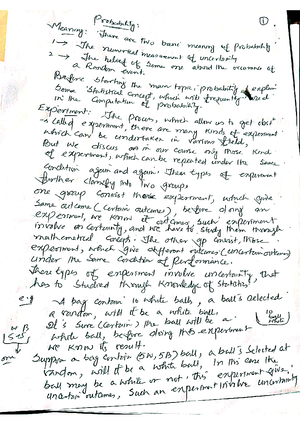 Probability:
①
Meaning: There are two basic meaning of Probability
1 → The numerical measurement of uncertainty
2 → The belief of some one about the occurance of
a Random event.
Before starting the main topic, probability explain
Some Statistical Concept, which will frequently used
in the Computation of probability.
Experiment: The Process, which allow us to get
is called experiment, there are many kinds of experiment
which can be undertaken in various field,
But we discuss on in our course only those kind
of experiment, which can be repeated under the same
condition again and again. These types of experiment
further classify into two groups
one group consist those experiment, which give
Same outcome (certain outcomes), before doing an
experiment, we know it outcomes, such experiment
involve on certainty, and we have to study them through
mathematical concept. The other gp consist, those
experiment, which give different outcomes (uncertain outcomes)
under the same Condition of Performance.
These types of experiment involve uncertainty, that
has to Studied through knowledge of Statistics
e.g A bag contain 10 white balls, a ball is selected
a random, will it be a white ball.
It's sure (certain) the ball will be a
white ball, before doing this experiment
we know its result.
10 balls
white
W B
5+5
one
Suppose a bag contain (5W, 5B) ball, a ball is selected at
random, will it be a white ball, In this case the
ball may be a white or not. This experiment gives
uncertain outcomes, Such an experiment involve uncertainty